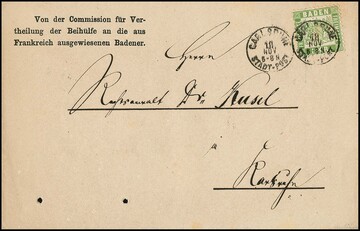 Von der Commission für Ver-
theilung der Beihülfe an die aus
Frankreich ausgewiesenen Badener.
CARLSRUHE
18
NOV
STADT-POST
CARLSRUHE
18
NOV
BADEN
Herrn
Rechtsanwalt Dr. Kusel
in
Karlsruhe